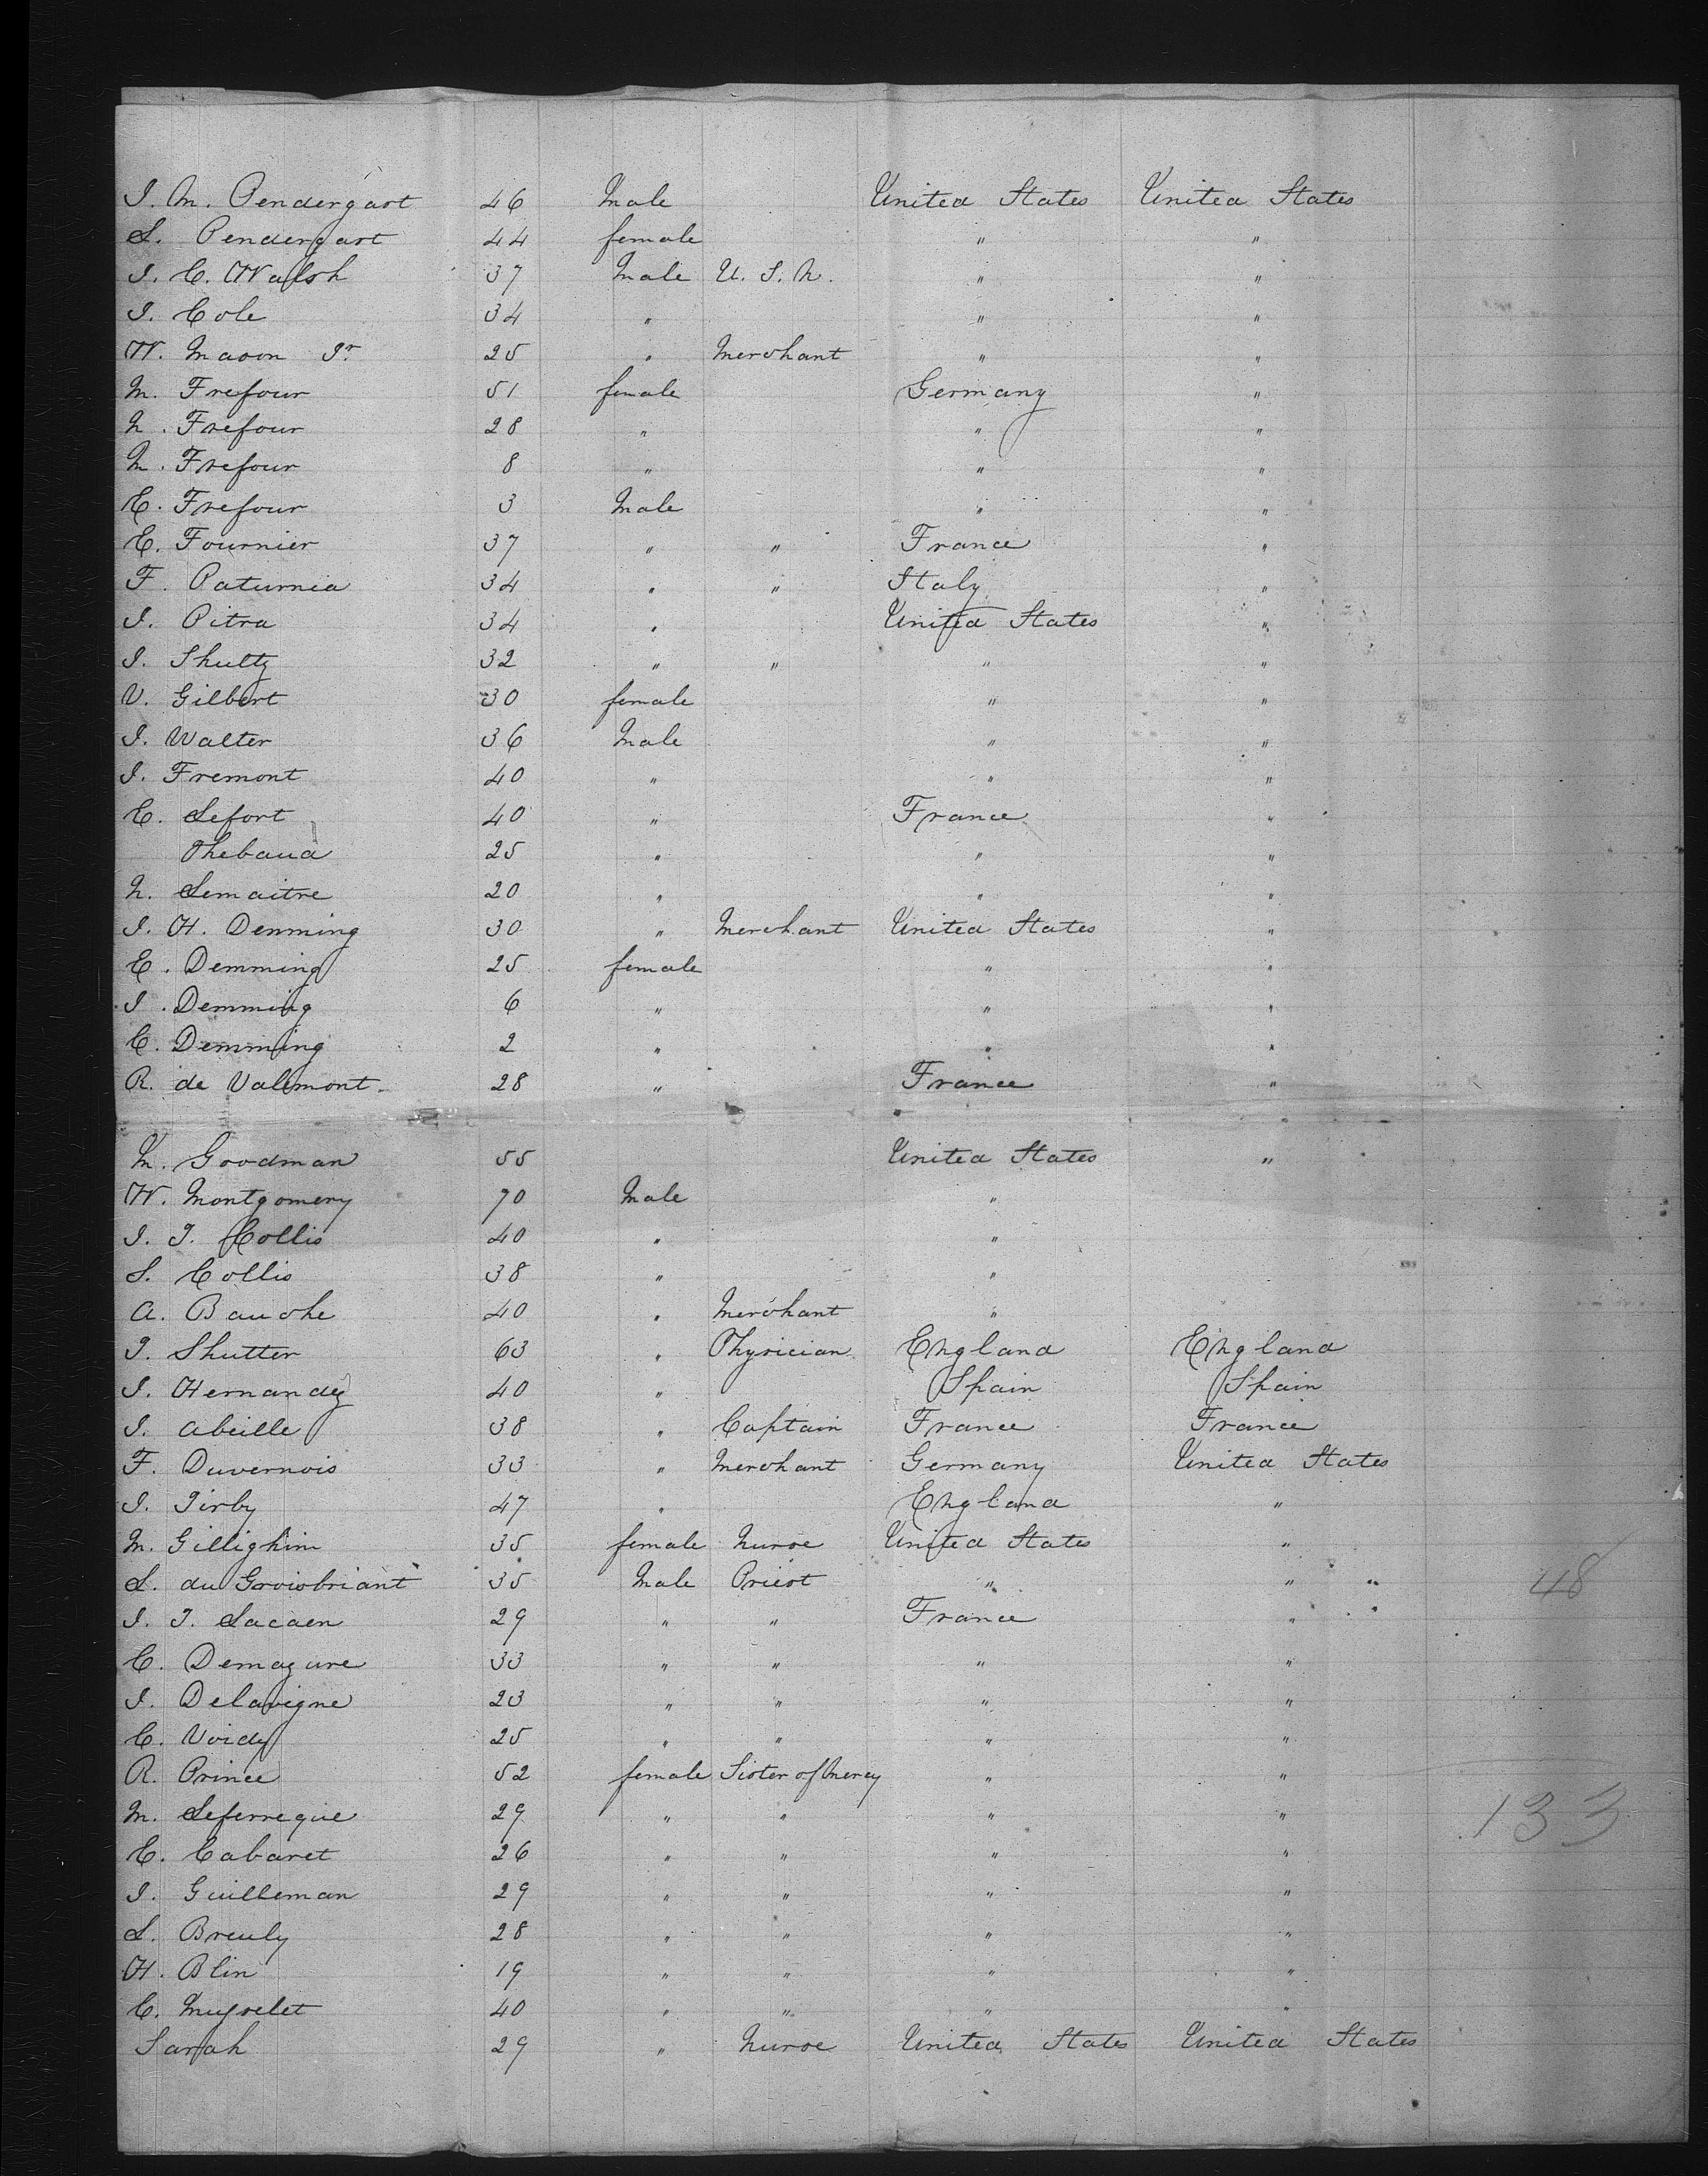 J. M. Pendergast 46 Male United States United States
L. Pendergast 44 female " "
J. C. Walsh 37 Male U. S. N. " "
J. Cole 34 " " "
W. Mason Jr 25 " Merchant " "
M. Frefour 51 female Germany "
N. Frefour 28 " " "
M. Frefour 8 " " "
E. Frefour 3 Male " "
E. Fournier 37 " " France "
F. Paturnia 34 " " Italy "
J. Pitra 34 " United States "
J. Shultz 32 " " " "
V. Gilbert 30 female " "
J. Walter 36 Male " "
J. Fremont 40 " " "
E. Lefort 40 " France "
Thebaud 25 " " "
N. Lemaitre 20 " " "
J. H. Demming 30 " Merchant United States "
E. Demming 25 female " "
J. Demming 6 " " "
C. Demming 2 " " "
R. de Valemont 28 " France "
M. Goodman 55 United States "
W. Montgomery 70 Male "
J. J. Collis 40 " "
S. Collis 38 " "
A. Bauche 40 " Merchant "
J. Shutter 63 " Physician England England
J. Hernandez 40 " Spain Spain
J. Abeille 38 " Captain France France
F. Duvernois 33 " Merchant Germany United States
J. Tirby 47 " England "
M. Gillighim 35 female Nurse United States "
L. du Groisbriant 35 Male Priest " " " 48
J. J. Lacaen 29 " " France " "
C. Demazure 33 " " " "
J. Delavigne 23 " " " "
C. Voidy 25 " " " "
R. Prince 52 female Sister of Mercy " "
M. Leferreque 29 " " " " 133
E. Cabaret 26 " " " "
J. Guilleman 29 " " " "
L. Breuly 28 " " " "
H. Blin 19 " " " "
C. 40 " " " "
Sarah 29 " Nurse United States United States